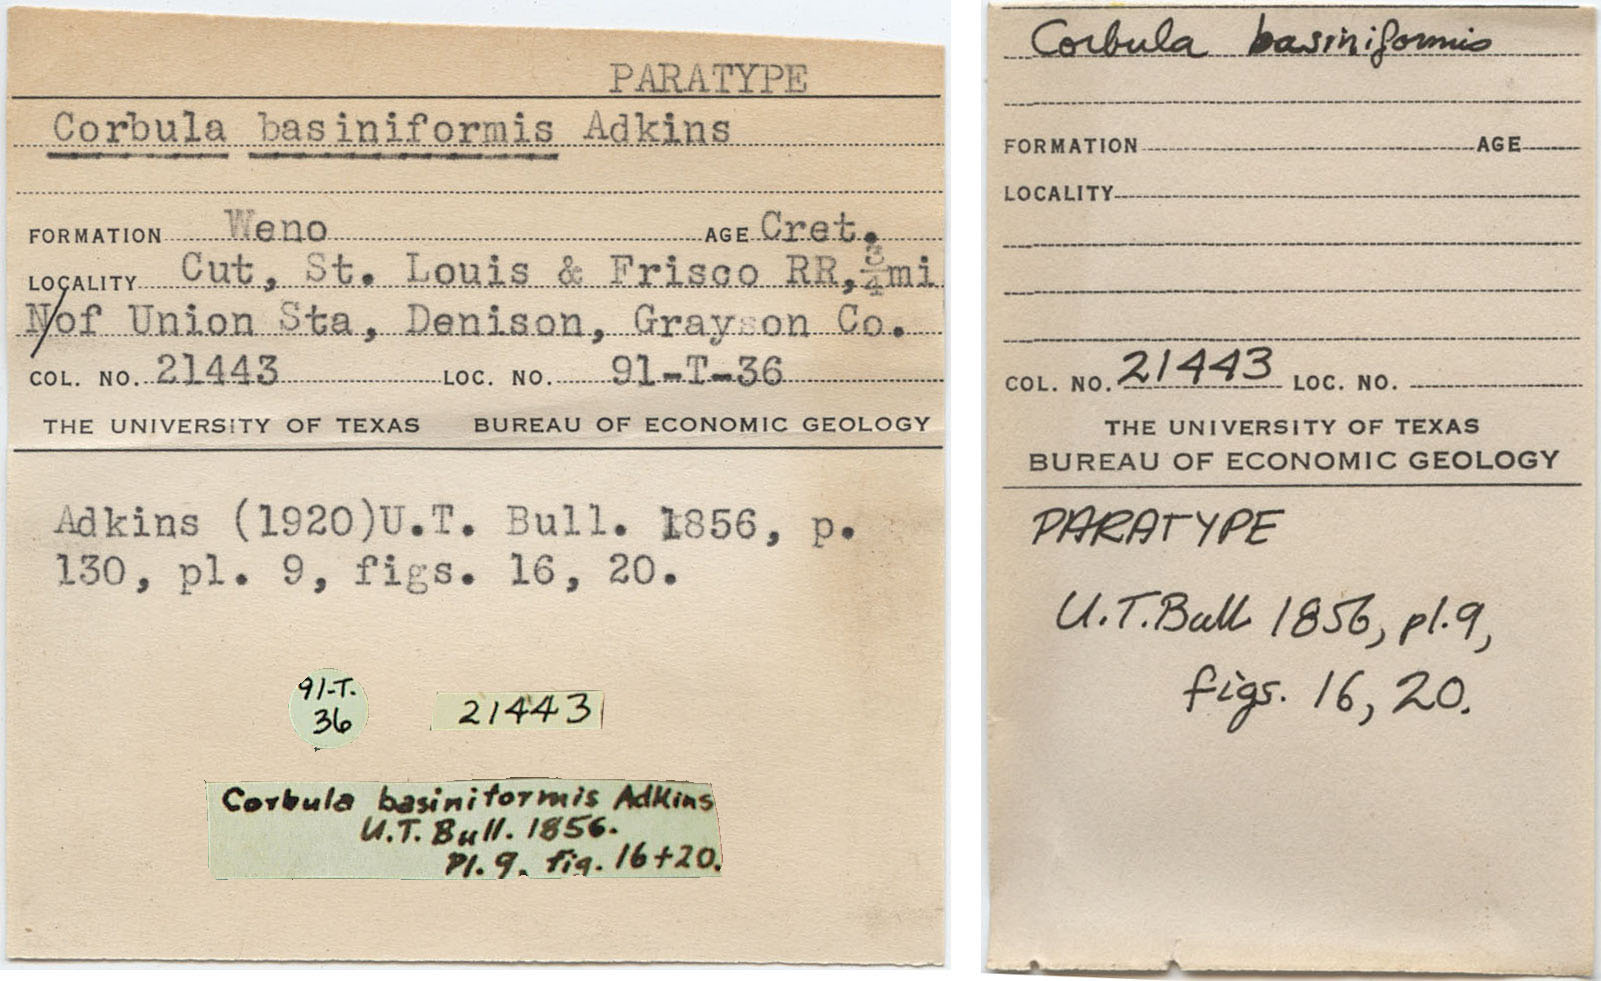 PARATYPE
Corbula basiniformis Adkins
FORMATION Weno AGE Cret.
LOCALITY Cut, St. Louis & Frisco RR, 3/4 mi
N/of Union Sta, Denison, Grayson Co.
COL. NO. 21443 LOC. NO. 91-T-36
THE UNIVERSITY OF TEXAS BUREAU OF ECONOMIC GEOLOGY
Adkins (1920)U.T. Bull. 1856, p.
130, pl. 9, figs. 16, 20.
91-T.
36
21443
Corbula basiniformis Adkins
U.T. Bull. 1856.
Pl. 9. fig. 16+20.
Corbula basiniformis
FORMATION AGE
LOCALITY
COL. NO. 21443 LOC. NO.
THE UNIVERSITY OF TEXAS
BUREAU OF ECONOMIC GEOLOGY
PARATYPE
U.T. Bull 1856, pl. 9,
figs. 16, 20.